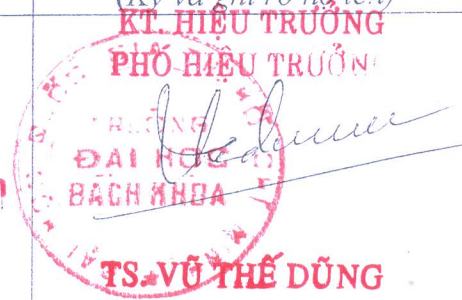 (Ký và ghi rõ họ tên)
KT. HIỆU TRƯỞNG
PHÓ HIỆU TRƯỞNG
TRƯỜNG
ĐẠI HỌC
BÁCH KHOA
TS. VŨ THẾ DŨNG